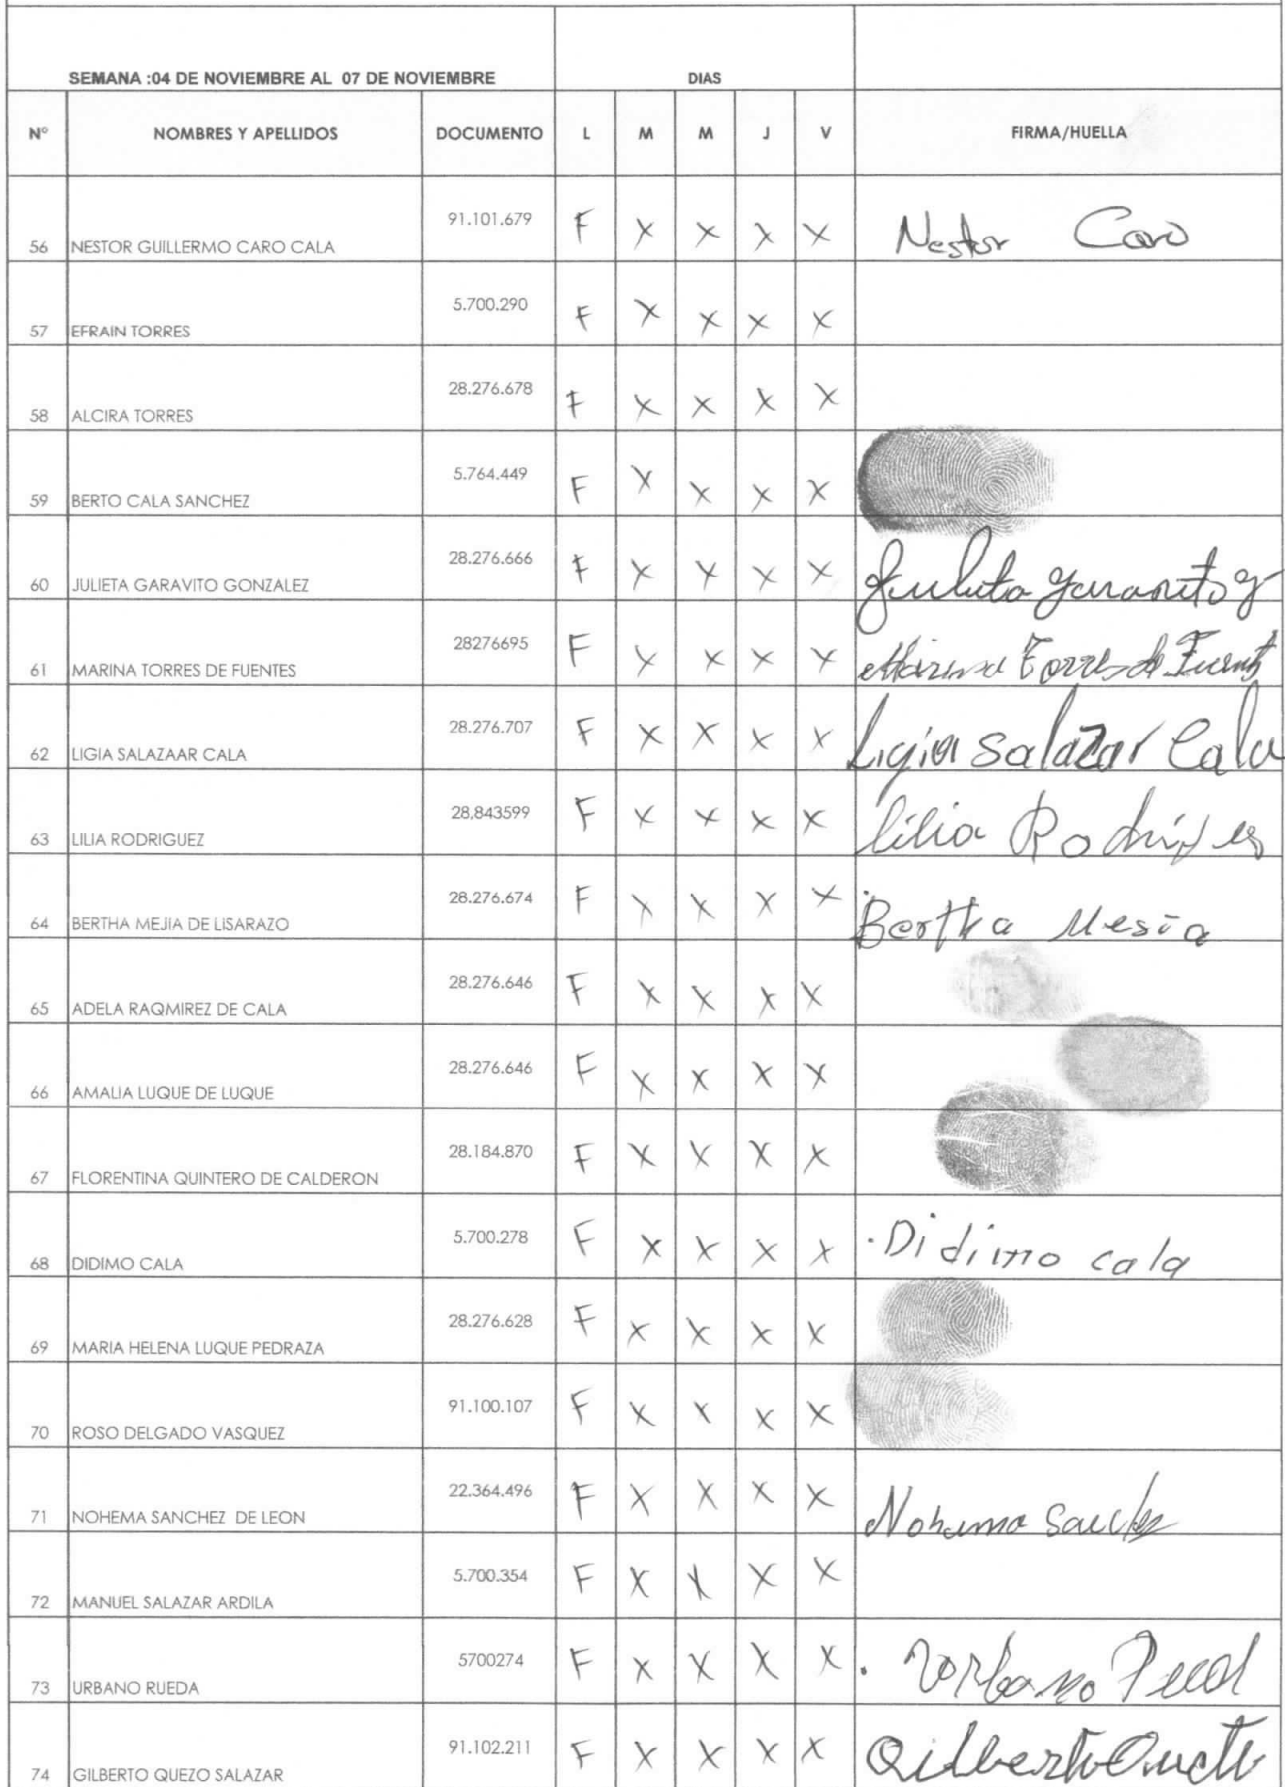 SEMANA :04 DE NOVIEMBRE AL 07 DE NOVIEMBRE DIAS
N° NOMBRES Y APELLIDOS DOCUMENTO L M M J V FIRMA/HUELLA
56 NESTOR GUILLERMO CARO CALA 91.101.679 F X X X X Nestor Caro
57 EFRAIN TORRES 5.700.290 F X X X X
58 ALCIRA TORRES 28.276.678 F X X X X
59 BERTO CALA SANCHEZ 5.764.449 F X X X X
60 JULIETA GARAVITO GONZALEZ 28.276.666 F X X X X Julieta Garavito G
61 MARINA TORRES DE FUENTES 28276695 F X X X X Marina Torres de Fuent
62 LIGIA SALAZAAR CALA 28.276.707 F X X X X Ligia Salazar Cala
63 LILIA RODRIGUEZ 28,843599 F X X X X lilia Rodríguez
64 BERTHA MEJIA DE LISARAZO 28.276.674 F X X X X Bertha Mesia
65 ADELA RAQMIREZ DE CALA 28.276.646 F X X X X
66 AMALIA LUQUE DE LUQUE 28.276.646 F X X X X
67 FLORENTINA QUINTERO DE CALDERON 28.184.870 F X X X X
68 DIDIMO CALA 5.700.278 F X X X X Didimo cala
69 MARIA HELENA LUQUE PEDRAZA 28.276.628 F X X X X
70 ROSO DELGADO VASQUEZ 91.100.107 F X X X X
71 NOHEMA SANCHEZ DE LEON 22.364.496 F X X X X Nohema Sanchez
72 MANUEL SALAZAR ARDILA 5.700.354 F X X X X
73 URBANO RUEDA 5700274 F X X X X Vorbano
74 GILBERTO QUEZO SALAZAR 91.102.211 F X X X X Gilberto